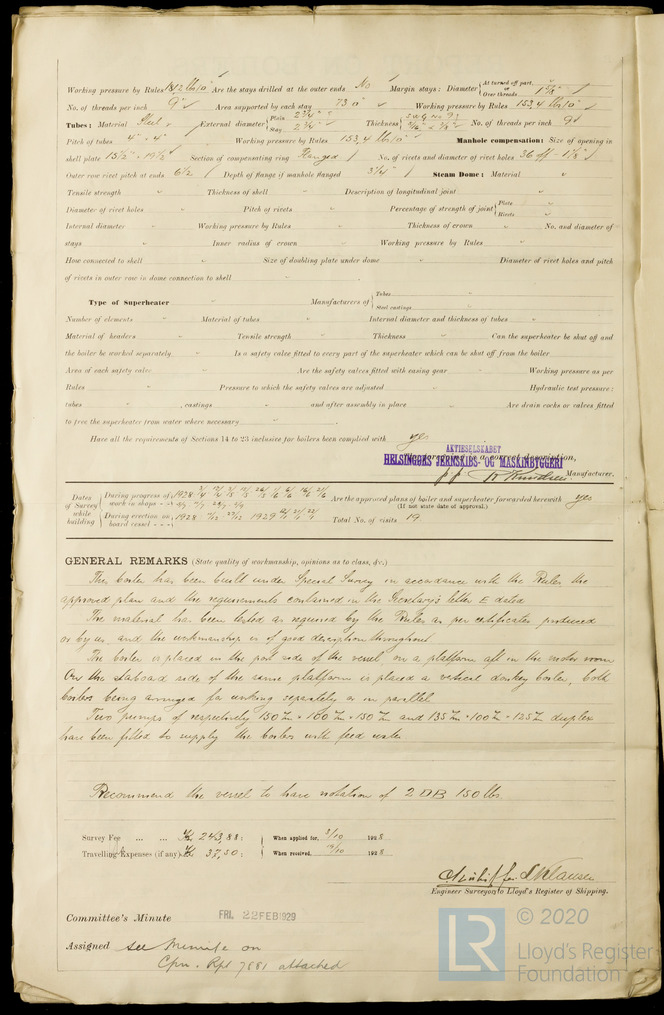 Working pressure by Rules 182 lbs/□" Are the stays drilled at the outer ends No Margin stays: Diameter { At turned off part, or Over threads 1 5/8"
No. of threads per inch 9" Area supported by each stay 73 □" Working pressure by Rules 153,4 lbs/□"
Tubes: Material Steel External diameter { Plain 2 3/4" Stay 2 3/4" Thickness { No. of threads per inch 9
Pitch of tubes 4" × 4" Working pressure by Rules 153,4 lbs/□" Manhole compensation: Size of opening in
shell plate 15 1/2" × 19 1/2" Section of compensating ring Flanged No. of rivets and diameter of rivet holes 36 off - 1 1/8"
Outer row rivet pitch at ends 6 1/2 Depth of flange if manhole flanged 3 1/4" Steam Dome: Material "
Tensile strength " Thickness of shell " Description of longitudinal joint "
Diameter of rivet holes " Pitch of rivets " Percentage of strength of joint { Plate " Rivets "
Internal diameter " Working pressure by Rules " Thickness of crown " No. and diameter of
stays " Inner radius of crown " Working pressure by Rules "
How connected to shell " Size of doubling plate under dome " Diameter of rivet holes and pitch
of rivets in outer row in dome connection to shell "
Type of Superheater " Manufacturers of { Tubes " Steel castings "
Number of elements " Material of tubes " Internal diameter and thickness of tubes "
Material of headers " Tensile strength " Thickness " Can the superheater be shut off and
the boiler be worked separately " Is a safety valve fitted to every part of the superheater which can be shut off from the boiler "
Area of each safety valve " Are the safety valves fitted with easing gear " Working pressure as per
Rules " Pressure to which the safety valves are adjusted " Hydraulic test pressure:
tubes " , castings " and after assembly in place " Are drain cocks or valves fitted
to free the superheater from water where necessary "
Have all the requirements of Sections 14 to 23 inclusive for boilers been complied with yes
AKTIESELSKABET
The foregoing is a correct description,
HELSINGØRS JERNSKIBS- OG MASKINBYGGERI
p.p. Knudsen Manufacturer.
Dates of Survey while building { During progress of work in shops - - 1928
Are the approved plans of boiler and superheater forwarded herewith yes
(If not state date of approval.)
During erection on board vessel - - - 1928 1929 Total No. of visits 19
GENERAL REMARKS (State quality of workmanship, opinions as to class, &c.)
This boiler has been built under Special Survey in accordance with the Rules the
approved plan and the requirements contained in the Secretary's letter E dated
The material has been tested as required by the Rules as per certificates produced
or by us, and the workmanship is of good description throughout.
The boiler is placed in the port side of the vessel, on a platform aft in the motor room
On the staboad side of the same platform is placed a vertical donkey boiler, both
boilers being arranged for working separately or in parallel
Two pumps of respectively 150 m/m × 100 m/m × 150 m/m and 135 m/m × 100 m/m × 125 m/m duplex
have been fitted to supply the boilers with feed water
Recommend the vessel to have notation of 2 DB 150 lbs.
Survey Fee ... ... Kr. 243,88 : When applied for, 3/10 1928
Travelling Expenses (if any) Kr. 37,50 : When received, 19/10 1928
Engineer Surveyor to Lloyd's Register of Shipping.
Committee's Minute FRI. 22 FEB 1929
Assigned see Minute on
Cpn. Rpt 7881 attached
LR © 2020
Lloyd's Register
Foundation